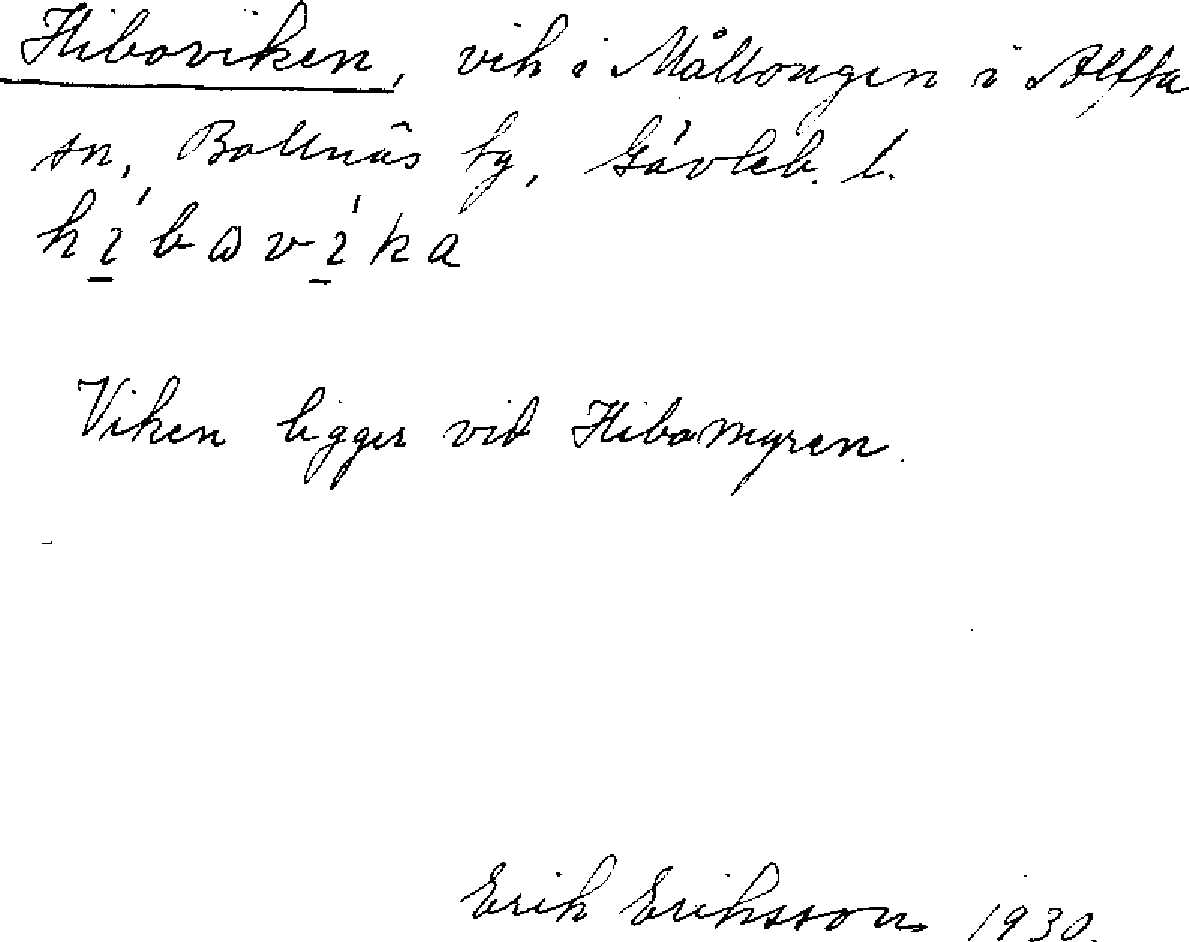 Hiboviken, vik i Mållongen i Alfta
sn, Bollnäs tg, Gävleb. l.
hibavika
Viken ligger vid Hibomyren.
Erik Eriksson 1930.